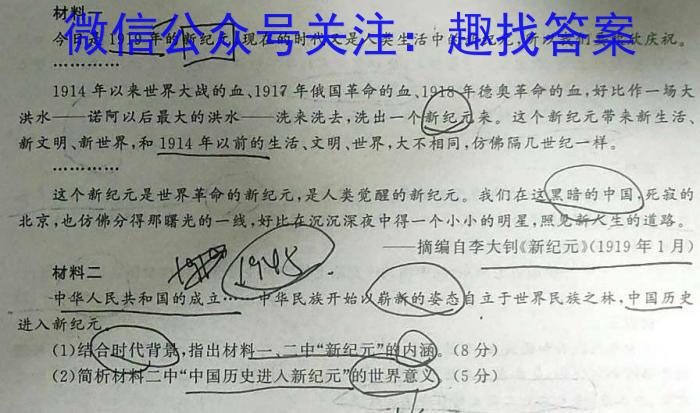 材料一
微信公众号关注：趣找答案
今日是1919年的新纪元，现在的时代又是人类生活中的新纪元，所以我们要欢欣庆祝。
…………
1914年以来世界大战的血、1917年俄国革命的血、1918年德奥革命的血，好比作一场大
洪水——诺阿以后最大的洪水——洗来洗去，洗出一个新纪元来。这个新纪元带来新生活、
新文明、新世界，和1914年以前的生活、文明、世界，大不相同，仿佛隔几世纪一样。
…………
这个新纪元是世界革命的新纪元，是人类觉醒的新纪元。我们在这黑暗的中国，死寂的
北京，也仿佛分得那曙光的一线，好比在沉沉深夜中得一个小小的明星，照见新人生的道路。
——摘编自李大钊《新纪元》(1919年1月)
1948
材料二
中华人民共和国的成立……中华民族开始以崭新的姿态自立于世界民族之林，中国历史
进入新纪元。
(1)结合时代背景，指出材料一、二中“新纪元”的内涵。(8分)
(2)简析材料二中“中国历史进入新纪元”的世界意义。(5分)